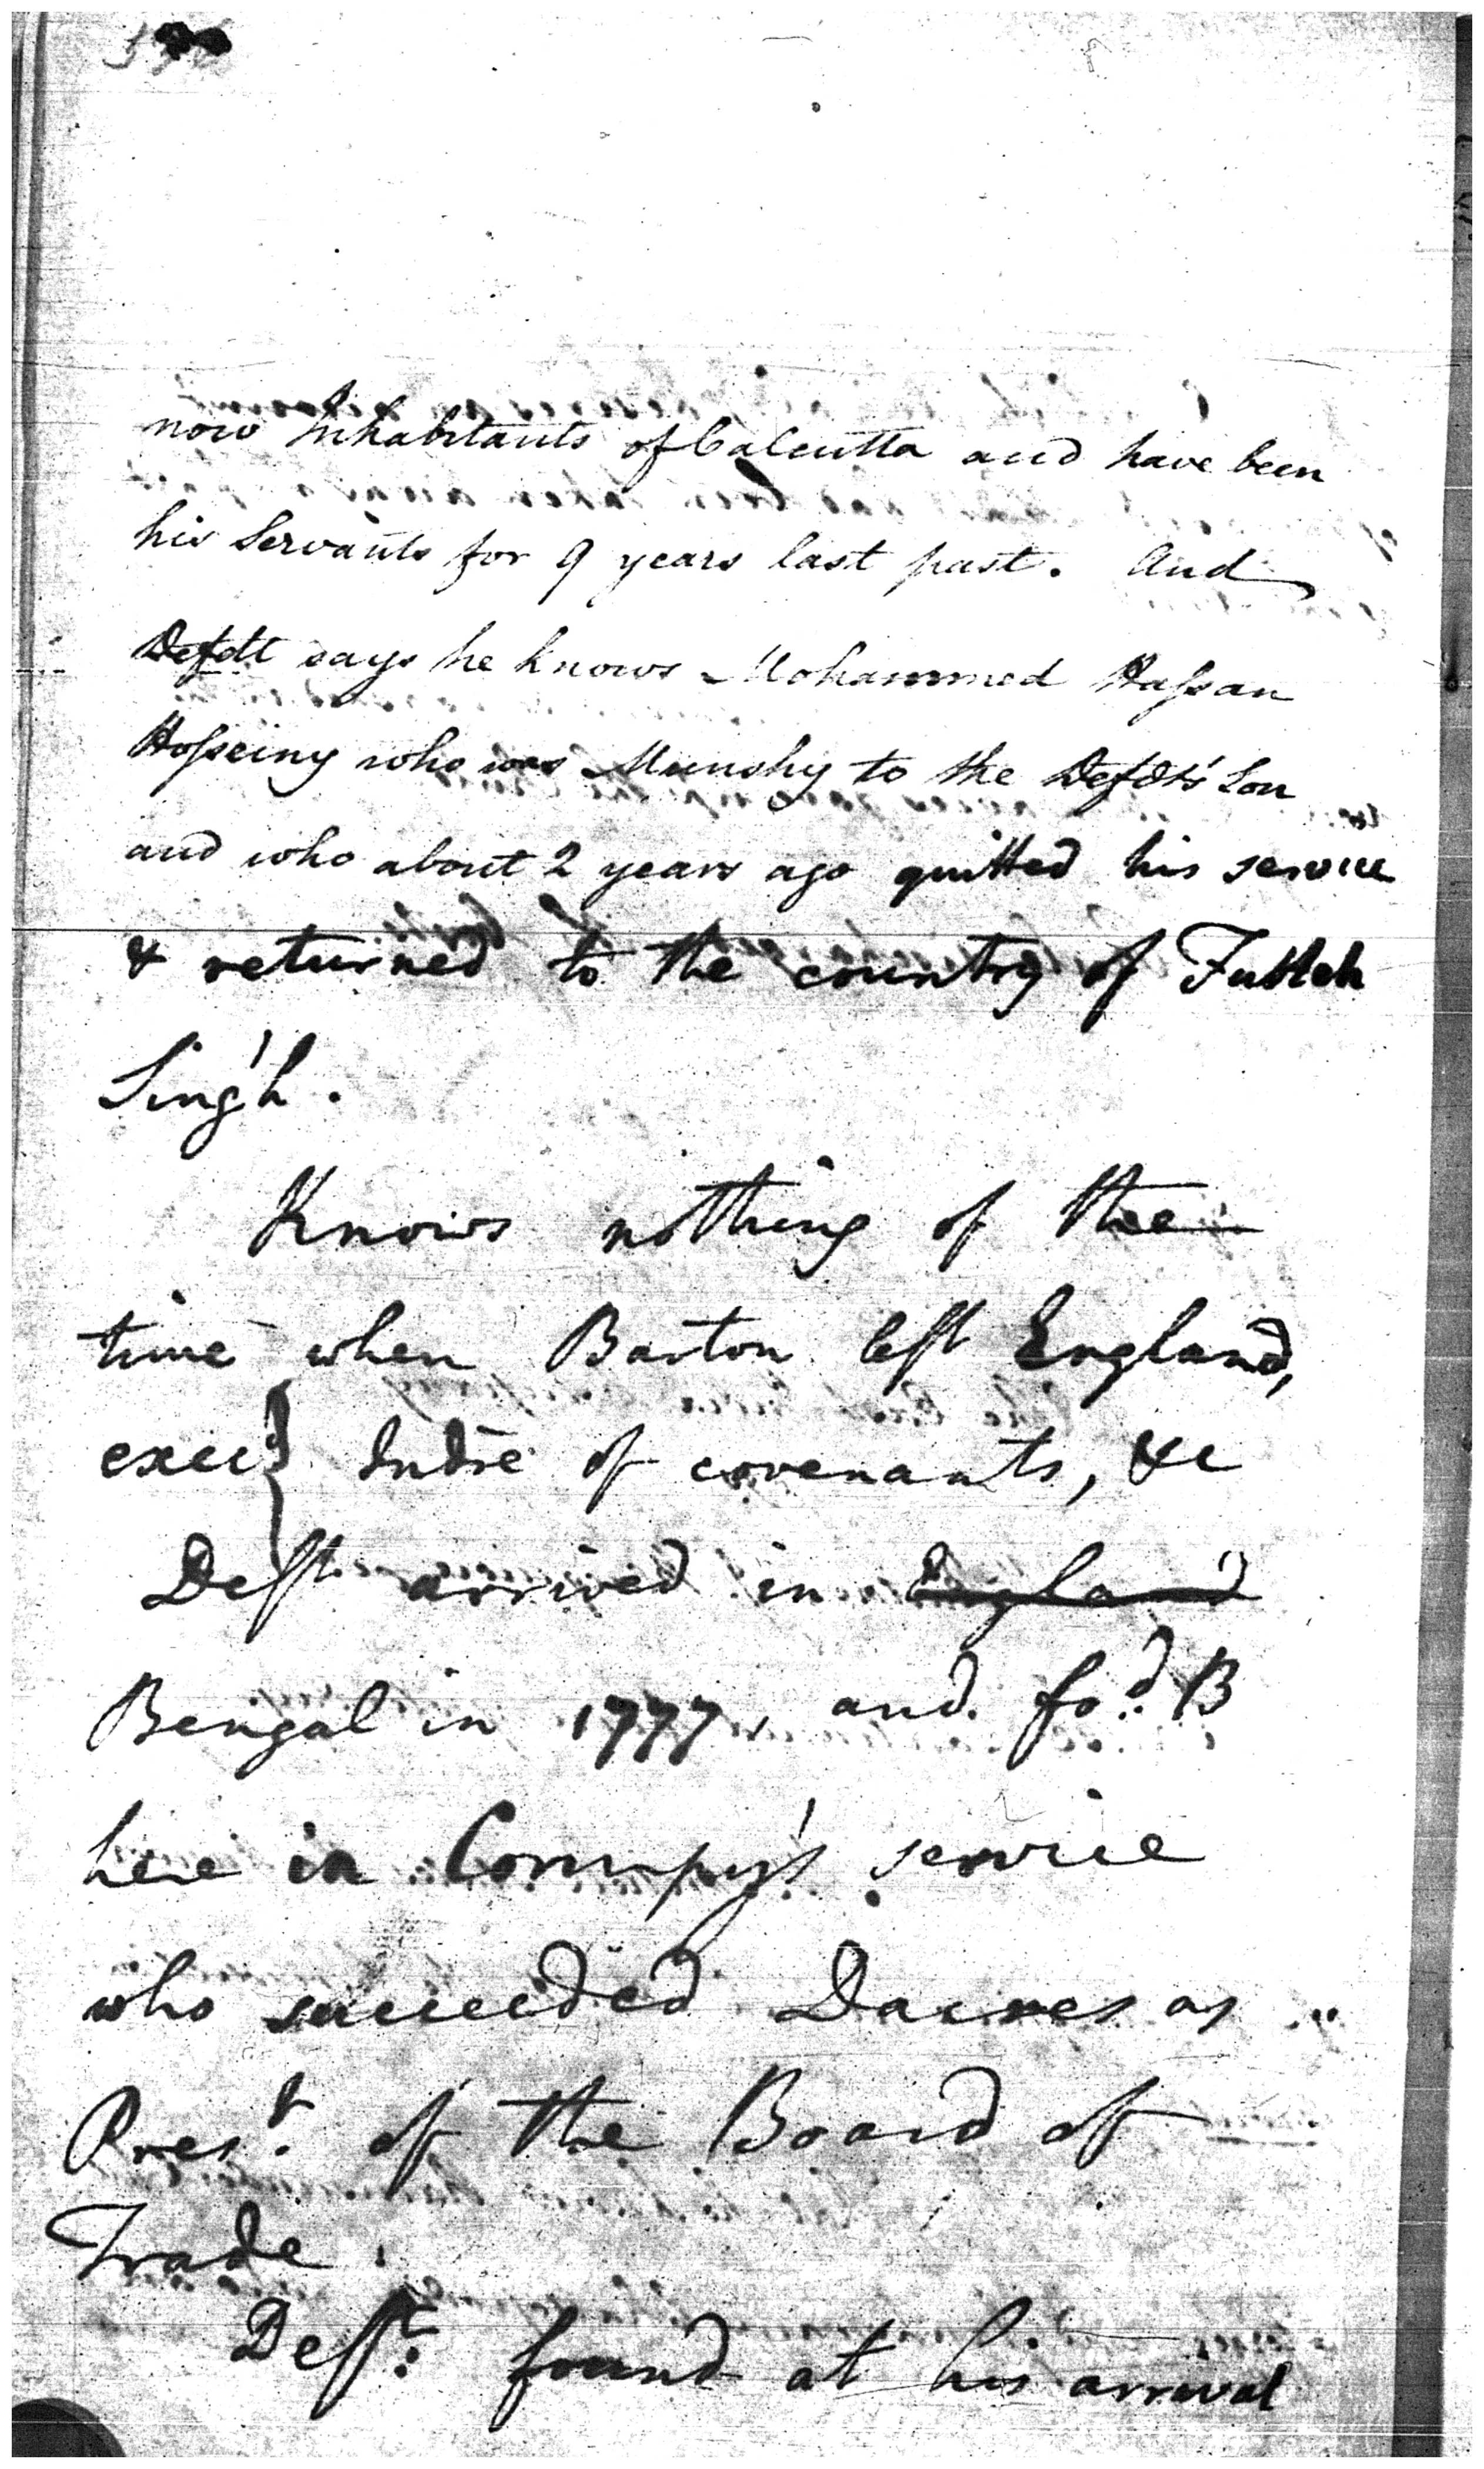 now Inhabitants of Calcutta and have been
his Servants for 9 years last past. And
Defdt says he knows Mohammed Hassan
Hosseiny who was Munshy to the Defdts' Son
and who about 2 years ago quitted his service
& returned to the country of Futteh
Sing'h.
Knows nothing of the
time when Barton left England,
exec.d Indre of covenants, &c
Deft. arrived in England
Bengal in 1777, and fo.d B
here in Compy's service
who succeeded Dacres as
Pres.t of the Board of
Trade.
Deft. found at his arrival